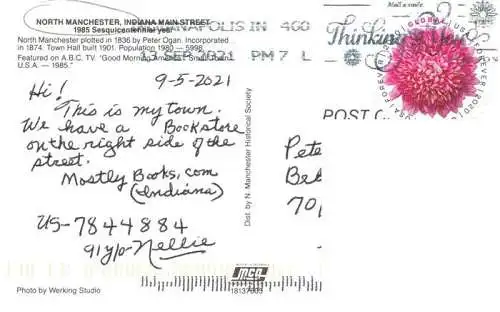 Mail a smile.
NORTH MANCHESTER, INDIANA MAIN STREET
1985 Sesquicentennial year
INDIANAPOLIS IN 460
North Manchester plotted in 1836 by Peter Ogan. Incorporated
in 1874. Town Hall built 1901. Population 1980 — 5998.
13 SEP 2021 PM 7 L
Thinking
GLOBAL
USA FOREVER
2020
Featured on A.B.C. TV "Good Morning America" Small Town
U.S.A. — 1985."
9-5-2021
Hi!
This is my town.
We have a Bookstore
on the right side of the
street.
Mostly Books, com
(Indiana)
US-7844884
91 y/o Nellie
POST C
Pete
Be
70
Distributed by N. Manchester Historical Society
Photo by Werking Studio
18137